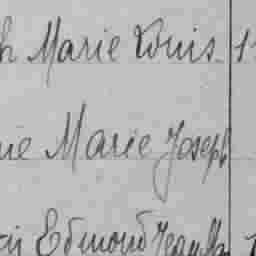 h Marie Louis 1
ie Marie Joseph
Edmond